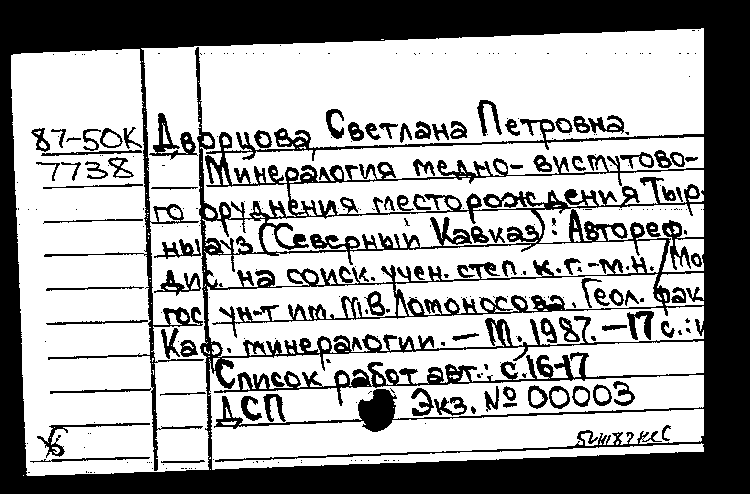 87-50К Дворцова, Светлана Петровна.
7738 Минералогия медно-висмутово-
го оруднения месторождения Тыр
ныауз (Северный Кавказ): Автореф.
дис. на соиск. учен. степ. к.г.-м.н. / Мо
гос ун-т им. М.В. Ломоносова. Геол. фак
Каф. минералогии. — М., 1987. — 17 с.: и
Список работ авт.: с. 16-17
ДСП Экз. № 00003